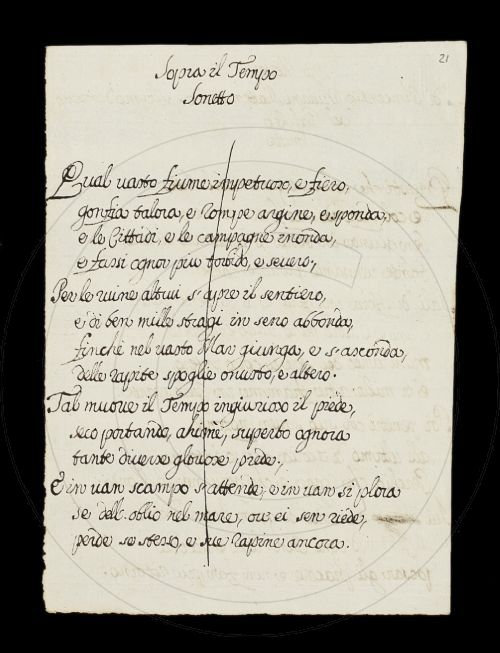 21
Sopra il Tempo
Sonetto
Qual uasto fiume impetuoso, e fiero,
gonfia talora, e rompe argine, e sponda,
e le Cittadi, e le campagne inonda,
e farsi ognor più torbido, e seuero;
Per le ruine altrui s'apre il sentiero,
e di ben mille stragi in seno abbonda,
finchè nel uasto Mar giunga, e s'asconda,
delle rapite spoglie onusto, e altero.
Tal muoue il Tempo ingiurioso il piede,
seco portando, ahimè, superbo ognora
tante diuerse gloriose prede;
E in uan scampo s'attende, e in uan si plora
se dell'oblio nel mare, oue ei sen riede,
perde se stesso, e sue rapine ancora.